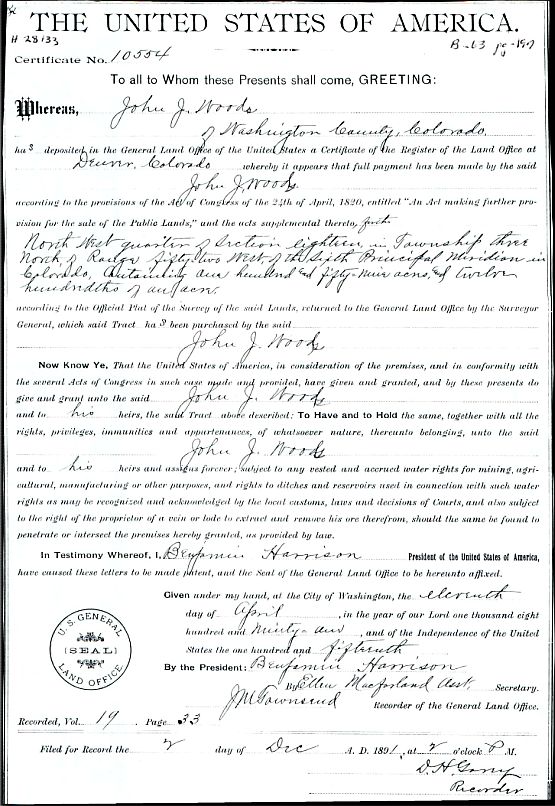 THE UNITED STATES OF AMERICA.
# 28133
B-63 pg-197
Certificate No. 10554
To all to Whom these Presents shall come, GREETING:
Whereas, John J. Woods
of Washington County, Colorado,
has deposited in the General Land Office of the United States a Certificate of the Register of the Land Office at
Denver, Colorado whereby it appears that full payment has been made by the said
John J. Woods
according to the provisions of the Act of Congress of the 24th of April, 1820, entitled "An Act making further pro-
vision for the sale of the Public Lands," and the acts supplemental thereto, for the
North West quarter of Section eighteen, in Township three
North of Range fifty-two West of the Sixth Principal Meridian in
Colorado, Containing one hundred and fifty-nine acres, and twelve
hundredths of an acre.
according to the Official Plat of the Survey of the said Lands, returned to the General Land Office by the Surveyor
General, which said Tract has been purchased by the said
John J. Woods
Now Know Ye, That the United States of America, in consideration of the premises, and in conformity with
the several Acts of Congress in such case made and provided, have given and granted, and by these presents do
give and grant unto the said John J. Woods
and to his heirs, the said Tract above described: To Have and to Hold the same, together with all the
rights, privileges, immunities and appurtenances, of whatsoever nature, thereunto belonging, unto the said
John J. Woods
and to his heirs and assigns forever; subject to any vested and accrued water rights for mining, agri-
cultural, manufacturing or other purposes, and rights to ditches and reservoirs used in connection with such water
rights as may be recognized and acknowledged by the local customs, laws and decisions of Courts, and also subject
to the right of the proprietor of a vein or lode to extract and remove his ore therefrom, should the same be found to
penetrate or intersect the premises hereby granted, as provided by law.
In Testimony Whereof, I, Benjamin Harrison President of the United States of America,
have caused these letters to be made patent, and the Seal of the General Land Office to be hereunto affixed.
Given under my hand, at the City of Washington, the eleventh
day of April, in the year of our Lord one thousand eight
hundred and Ninety-one, and of the Independence of the United
States the one hundred and fifteenth
U.S. GENERAL
(SEAL)
LAND OFFICE.
By the President: Benjamin Harrison
By Ellen Macfarland Asst. Secretary.
J M Townsend Recorder of the General Land Office.
Recorded, Vol. 19 Page 33
Filed for Record the 2 day of Dec A. D. 1891, at 2 o'clock P M.
D. H.
Recorder